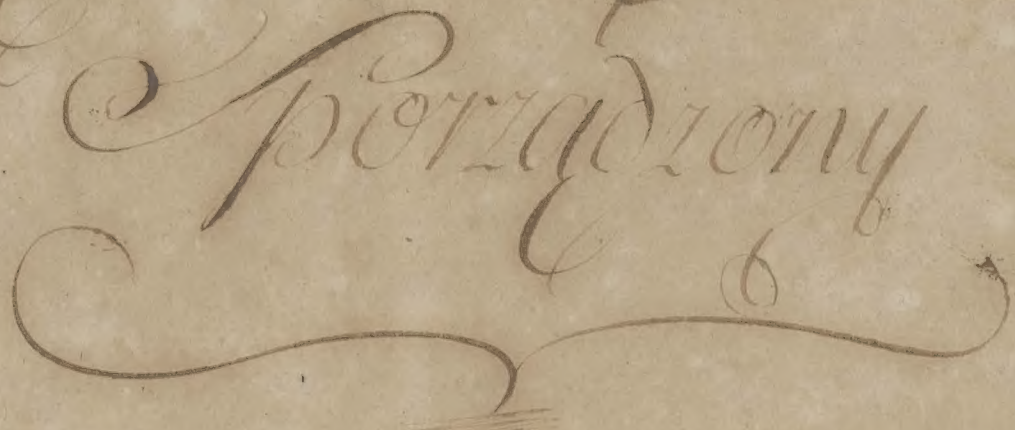 Sporządzony